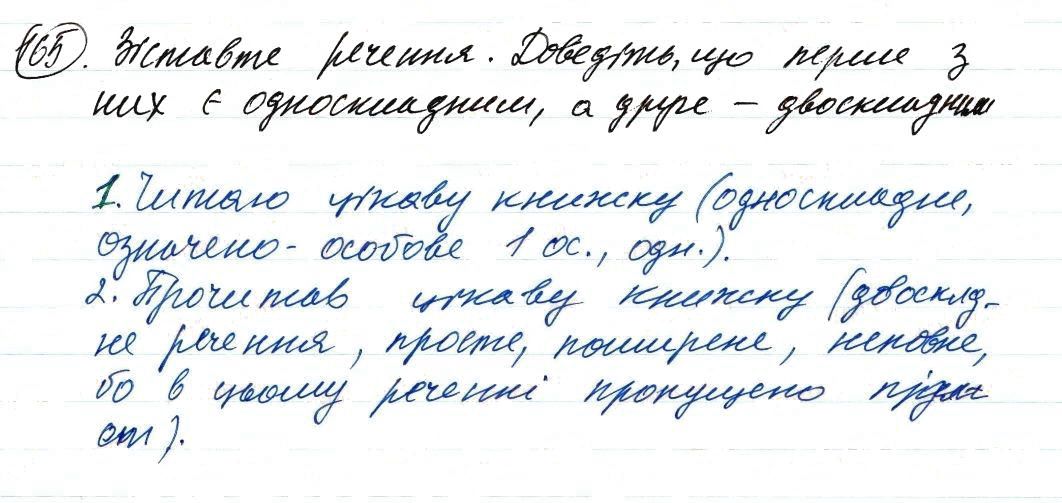 165. Зіставте речення. Доведіть, що перше з
них є односкладним, а друге – двоскладним
1. Читаю цікаву книжку (односкладне,
означено-особове 1 ос., одн.).
2. Прочитав цікаву книжку (двосклад-
не речення, просте, поширене, неповне,
бо в цьому реченні пропущено підм
ет).